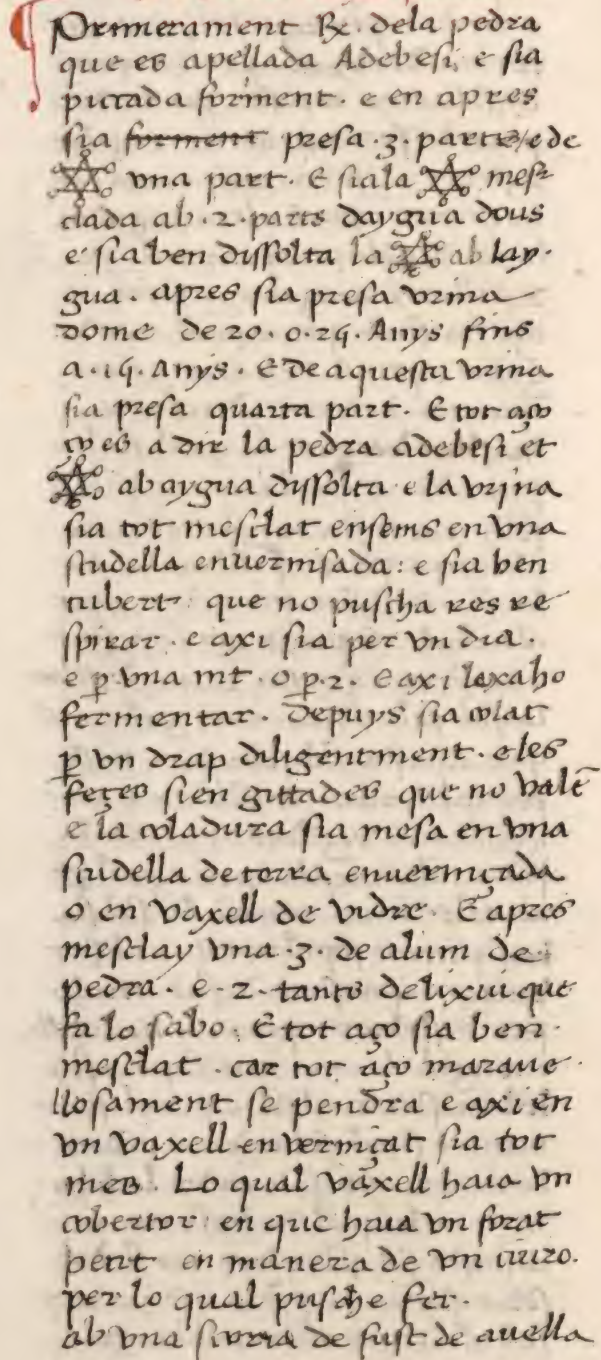 Primerament ℞. dela pedra
que es apellada Adebesi, e sia
piccada forment. e en apres
sia forment presa .3. parts / e de
✡ vna part. E sia la ✡ mes-
clada ab .2. parts daygua dous
e sia ben dissolta la ✡ ab lay-
gua. apres sia presa vrina
dome de 20. o. 24. Anys fins
a .14. Anys. E de aquesta vrina
sia presa quarta part. E tot aço
ço es a dir la pedra adebesi et
✡ ab aygua dissolta e la vrina
sia tot mesclat ensems en vna
scudella enuernisada: e sia ben
cubert que no puscha res re
spirar. e axi sia per vn dia.
e p̱ vna nit. o p̱ .2. E axi lexaho
fermentar. Depuys sia colat
p̱ vn drap diligentment. e les
feçes sien gittades que no valē
e la coladura sia mesa en vna
scudella de terra enuerniçada
o en vaxell de vidre. E apres
mesclay vna .3. de alum de
pedra. e .2. tants de lixiui que
fa lo sabo. E tot aço sia ben
mesclat. car tot aço maraue
llosament se pendra e axi en
vn vaxell enverniçat sia tot
mes. Lo qual vaxell haia vn
cobertor en que haia vn forat
petit en manera de vn ciuro.
per lo qual pusche fer.
ab vna scoria de fust de auella